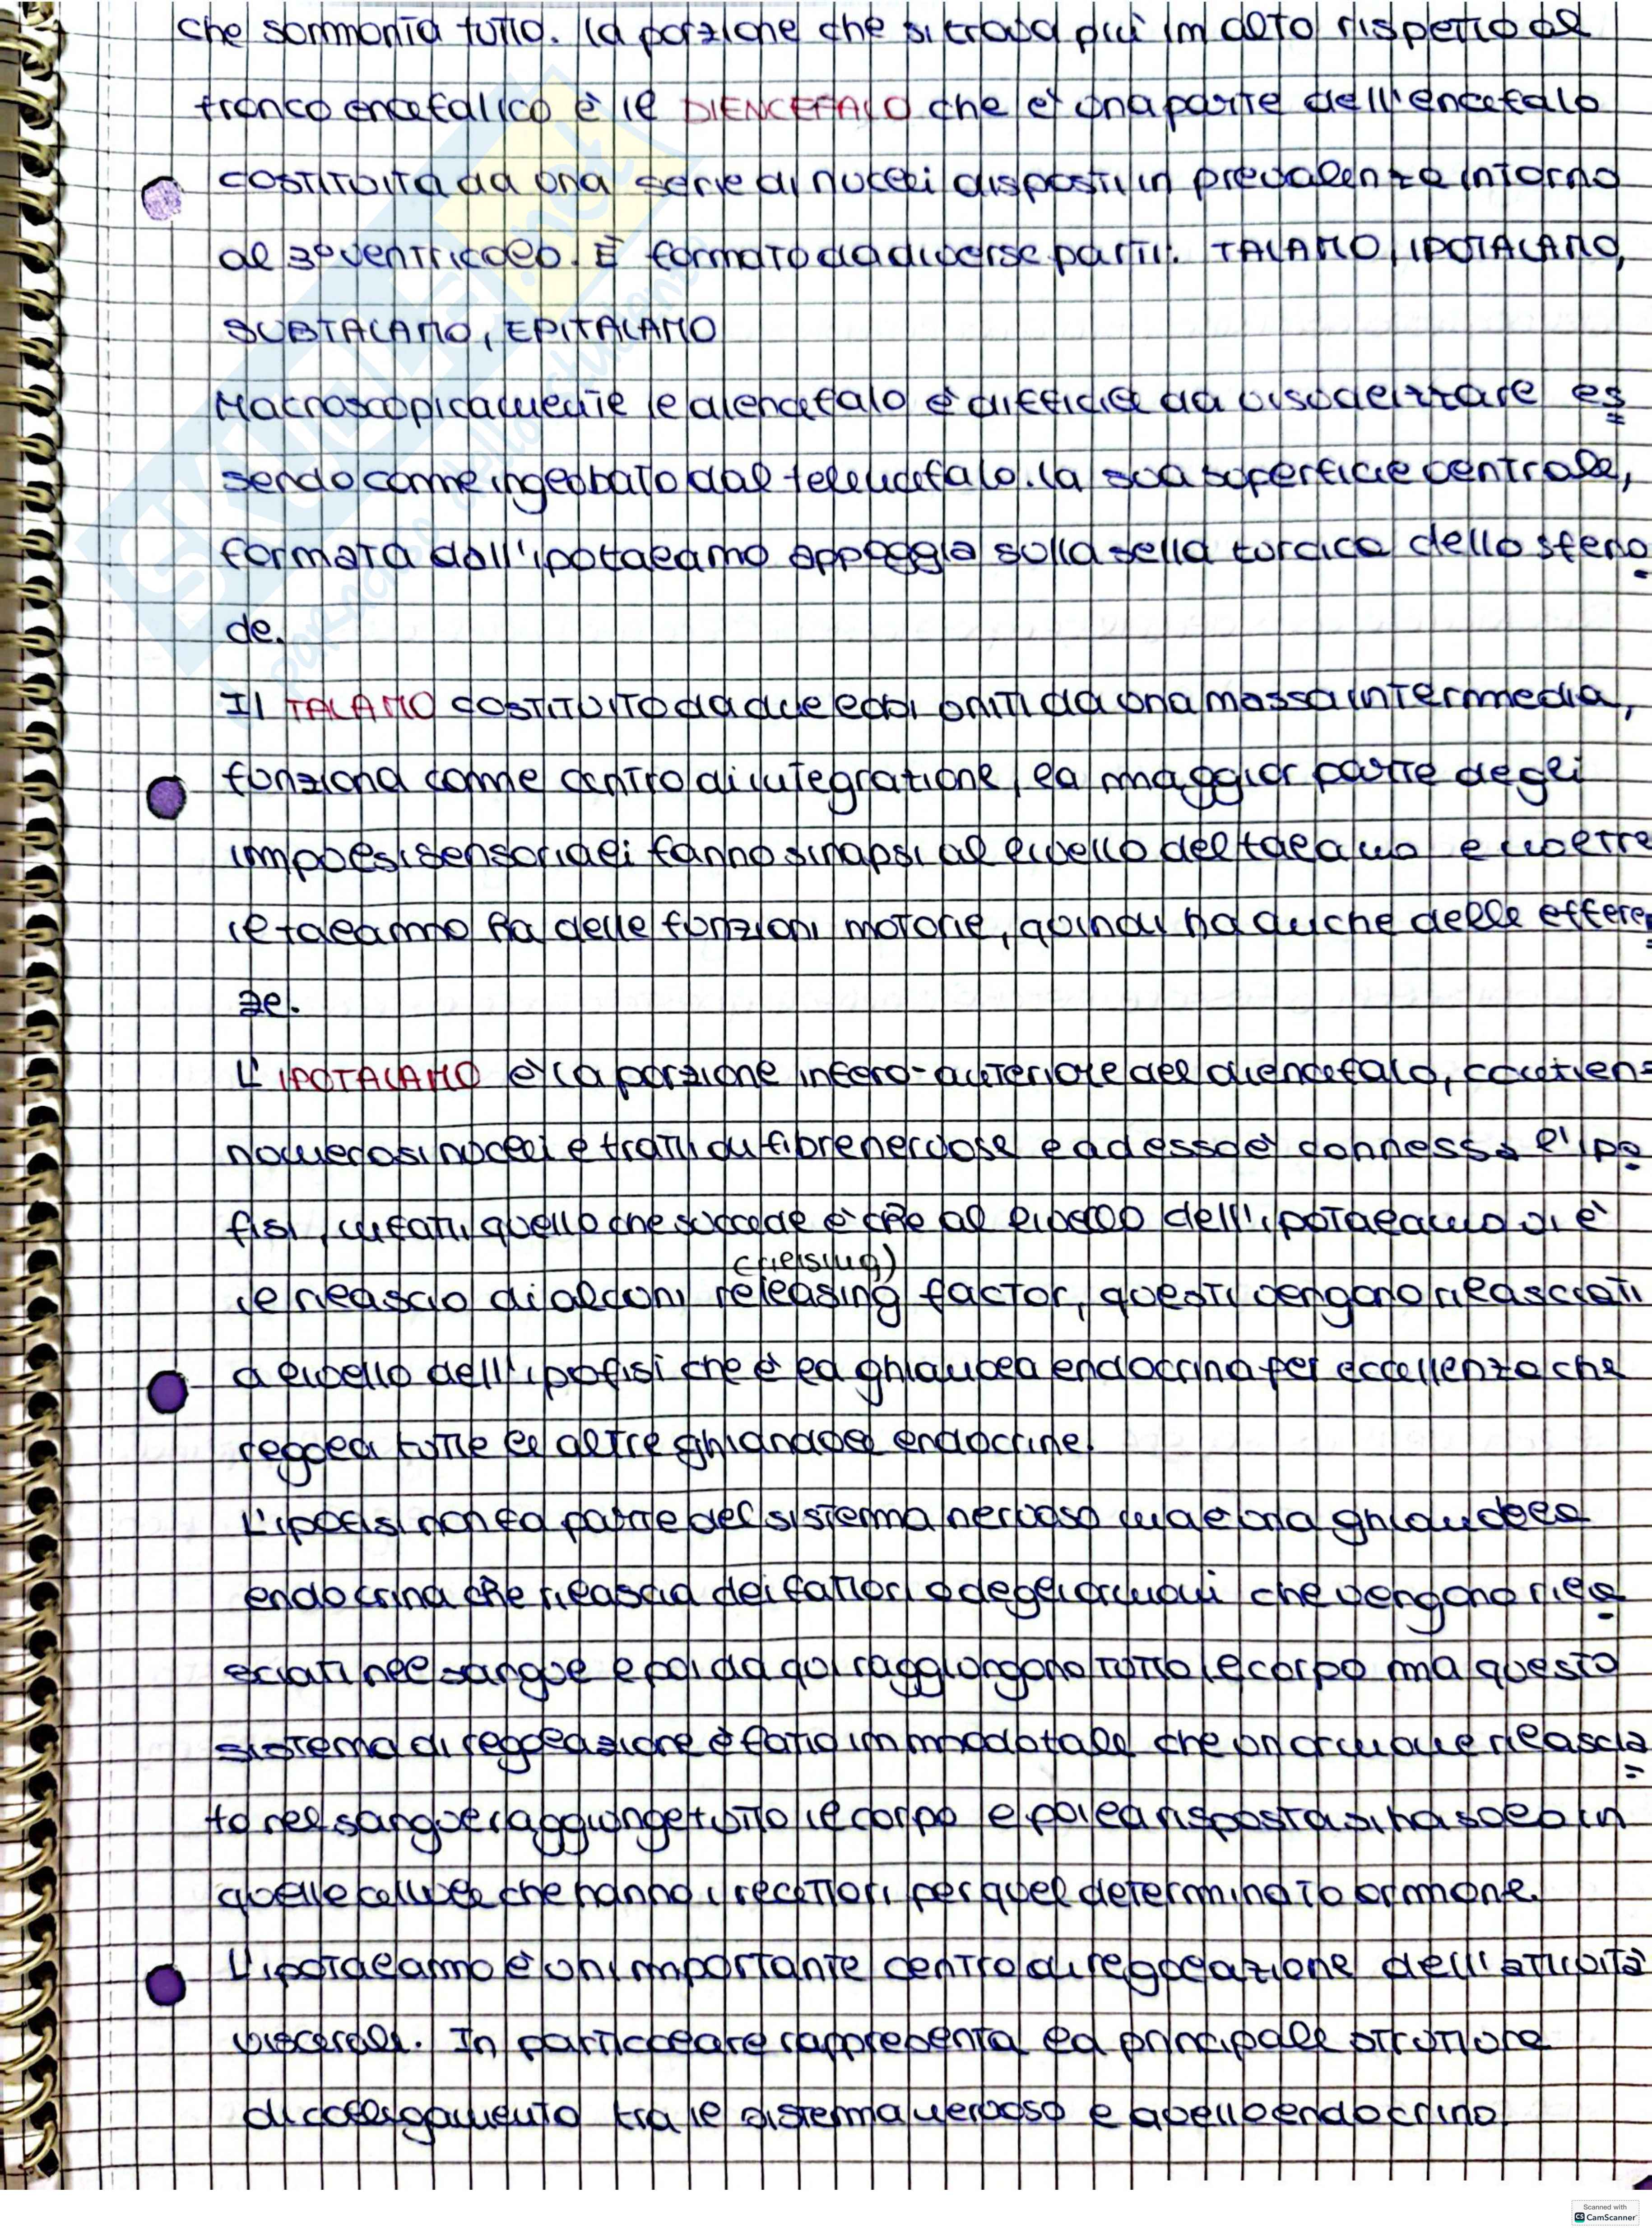 che sormonta tutto. La porzione che si trova più in alto rispetto al
tronco encefalico è il DIENCEFALO che è una parte dell'encefalo
costituita da una serie di nuclei disposti in prevalenza intorno
al 3° ventricolo. È formato da diverse parti: TALAMO, IPOTALAMO,
SUBTALAMO, EPITALAMO
Macroscopicamente il diencefalo è difficile da visualizzare es
sendo come inglobato dal telencefalo. La sua superficie ventrale,
formata dall'ipotalamo appoggia sulla sella turcica dello sfeno
de.
Il TALAMO costituito da due lobi uniti da una massa intermedia,
funziona come centro di integrazione, la maggior parte degli
impulsi sensoriali fanno sinapsi al livello del talamo e inoltre
il talamo ha delle funzioni motorie, quindi ha anche delle efferen
ze.
L'IPOTALAMO è la porzione infero-anteriore del diencefalo, contiene
numerosi nuclei e tratti di fibre nervose e ad esso è connessa l'ipo
fisi, infatti quello che succede è che al livello dell'ipotalamo vi è
(rielsing)
il rilascio di alcuni releasing factor, questi vengono rilasciati
a livello dell'ipofisi che è la ghiandola endocrina per eccellenza che
regola tutte le altre ghiandole endocrine.
L'ipofisi non fa parte del sistema nervoso ma è una ghiandola
endocrina che rilascia dei fattori o degli ormoni che vengono rila
sciati nel sangue e poi da qui raggiungono tutto il corpo ma questo
sistema di regolazione è fatto in modo tale che un ormone rilascia
to nel sangue raggiunge tutto il corpo e poi la risposta si ha solo in
quelle cellule che hanno i recettori per quel determinato ormone.
L'ipotalamo è un importante centro di regolazione dell'attività
viscerale. In particolare rappresenta la principale struttura
di collegamento tra il sistema nervoso e quello endocrino.
SKUOLA.net
Scanned with
CS CamScanner